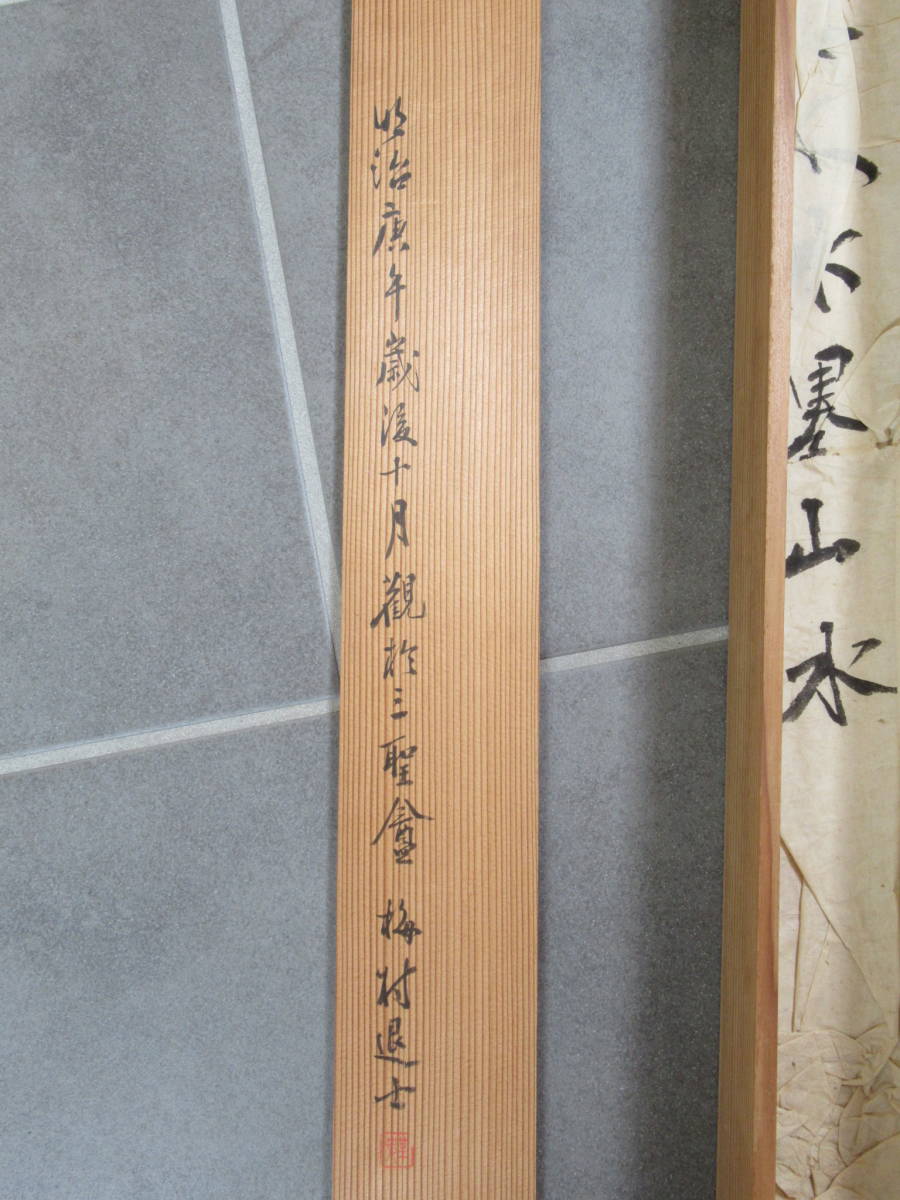 墨山水
明治庚午歳後十月觀於三聖盦 梅村退士